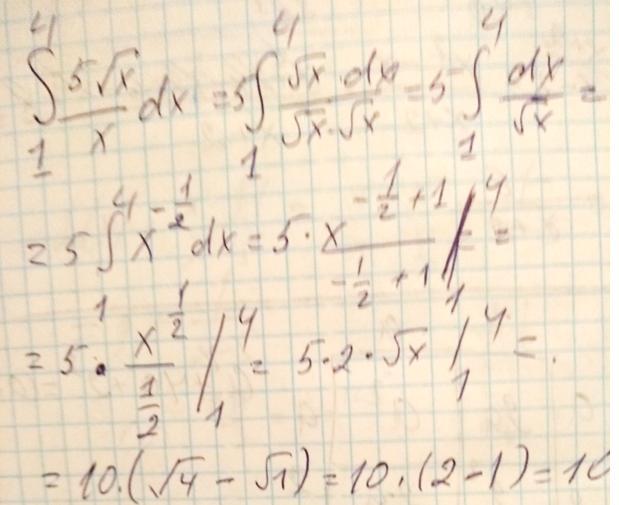 ∫₁⁴ 5√x/x dx = 5 ∫₁⁴ √x · dx/(√x · √x) = 5 ∫₁⁴ dx/√x =
= 5 ∫₁⁴ x^(-1/2) dx = 5 · x^(-1/2 + 1)/(-1/2 + 1) |₁⁴ =
= 5 · x^(1/2)/(1/2) |₁⁴ = 5 · 2 · √x |₁⁴ =
= 10 · (√4 - √1) = 10 · (2 - 1) = 10